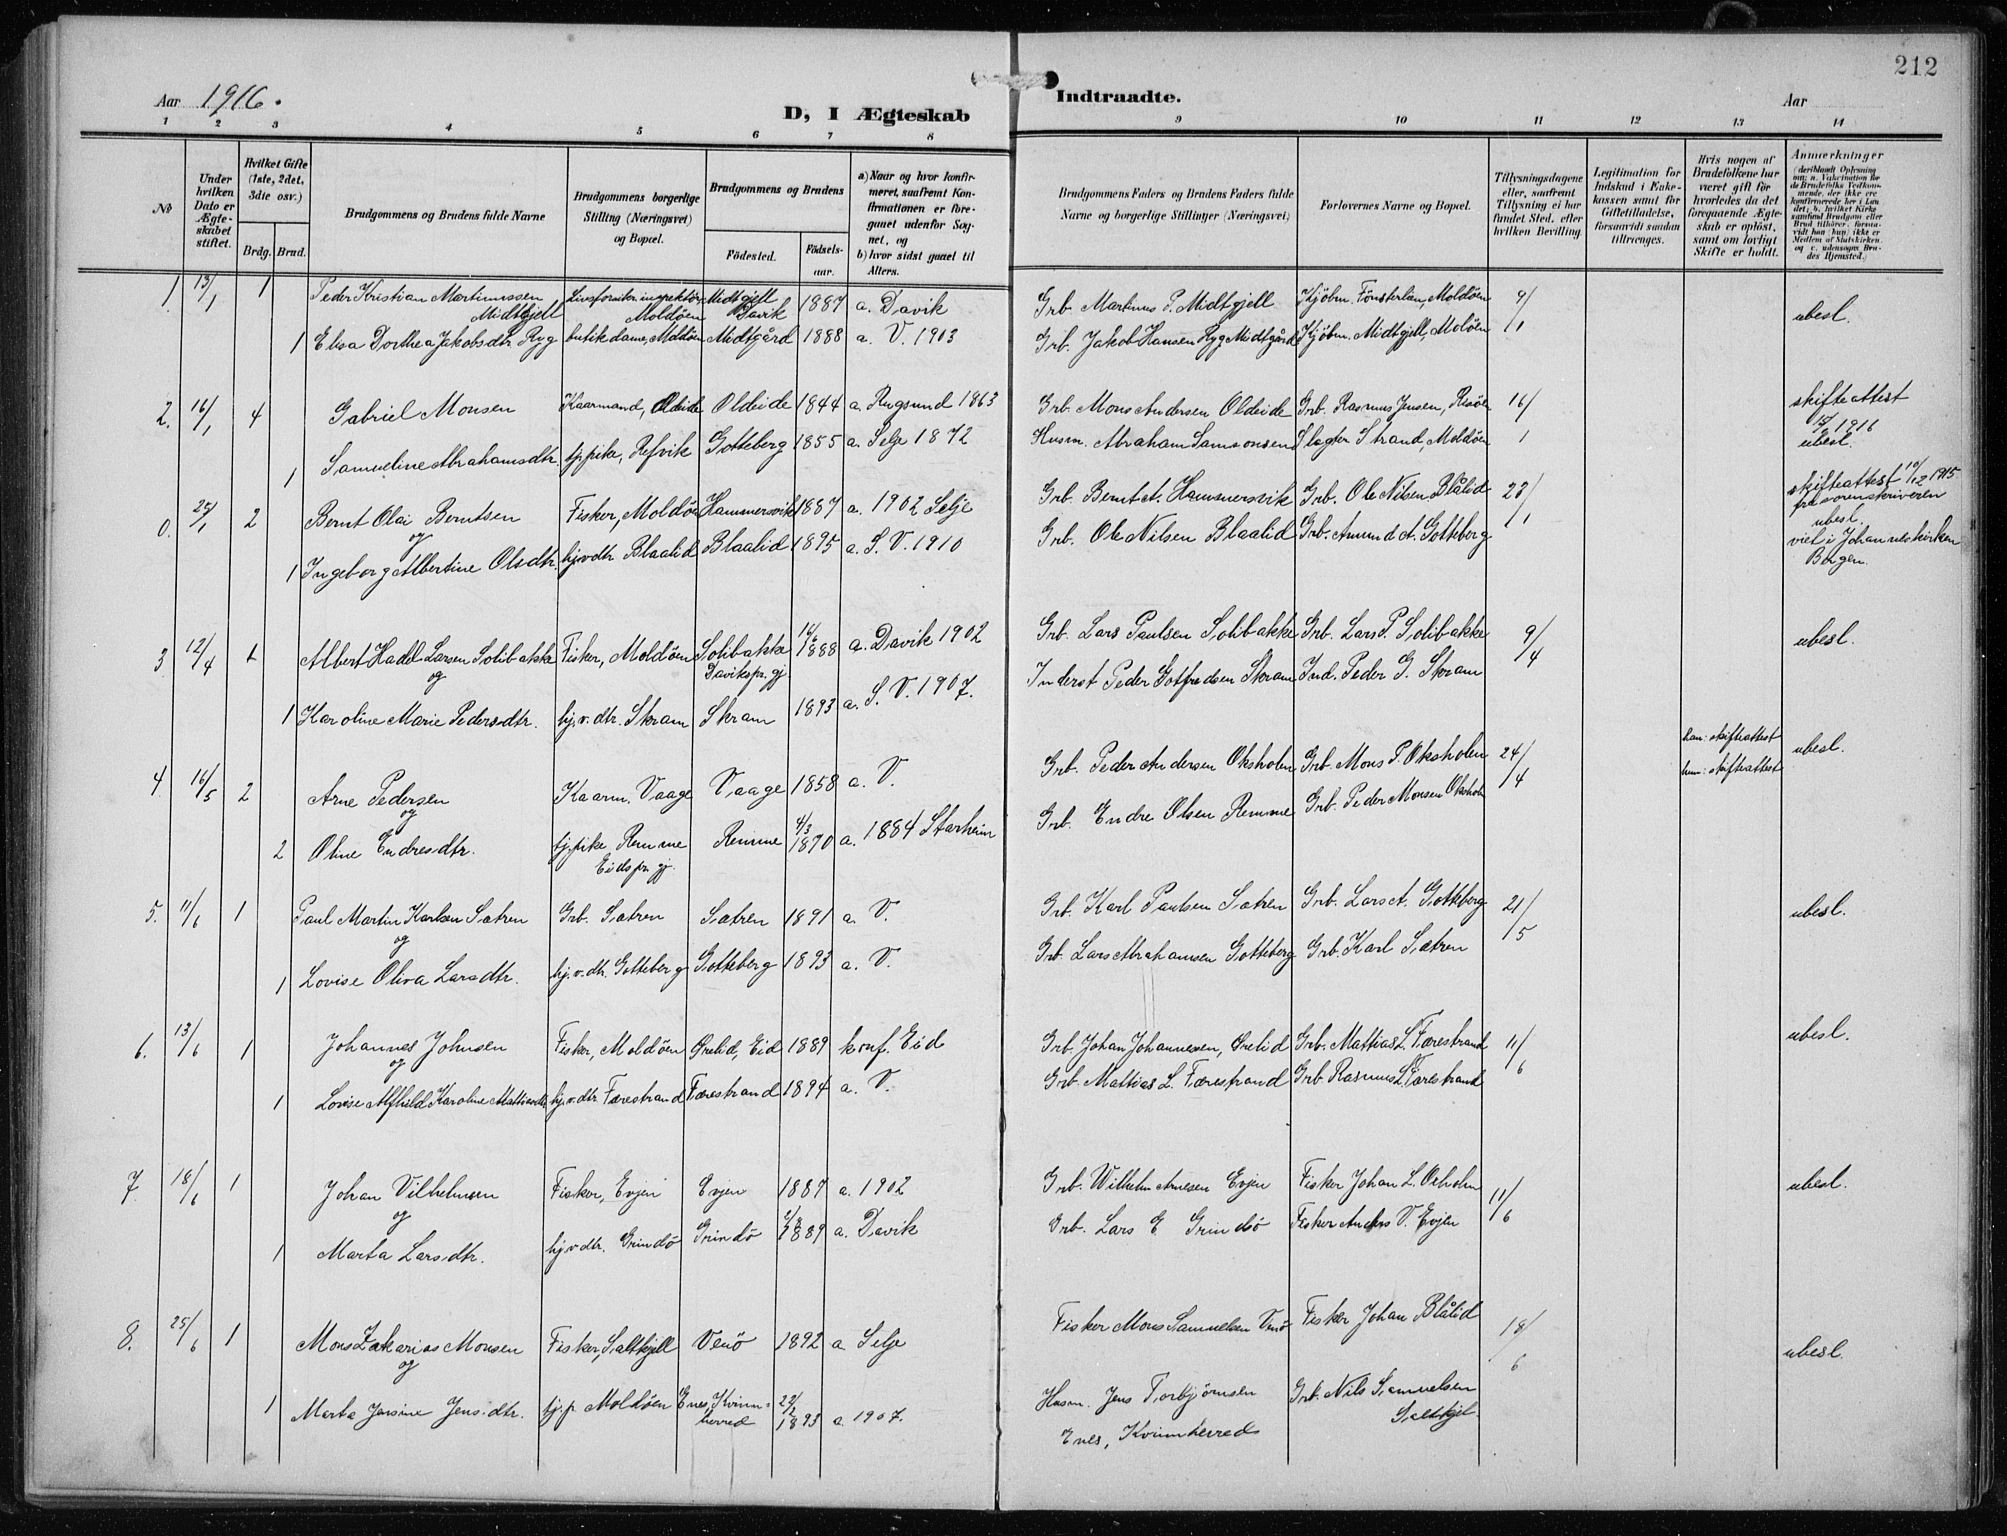 212
Aar 1916.
D, I Ægteskab
Indtraadte.
Aar
1 2 3 4 5 6 7 8 9 10 11 12 13 14
No
Under hvilken Dato er Ægteskabet stiftet.
Hvilket Gifte (1ste, 2det, 3die osv.)
Brdg. Brud.
Brudgommens og Brudens fulde Navne
Brudgommens borgerlige Stilling (Næringsvei) og Bopæl.
Brudgommens og Brudens
Fødested.
Fødselsaar.
a) Naar og hvor konfirmeret, saafremt Konfirmationen er foregaaet udenfor Sognet, og b) hvor sidst gaaet til Alters.
Brudgommens Faders og Brudens Faders fulde Navne og borgerlige Stillinger (Næringsvei)
Forlovernes Navne og Bopæl.
Tillysningsdagene eller, saafremt Tillysning ei har fundet Sted, efter hvilken Bevilling.
Legitimation for Indskud i Enkekassen samt for Giftetilladelse, forsaavidt saadan tiltrænges.
Hvis nogen af Brudefolkene har været gift før hvorledes da det foregaaende Ægteskab er opløst, samt om lovligt Skifte er holdt.
Anmerkninger
1. 13/1 1 Peder Kristian Martinussen Midtgjell Livsforsikr. inspektør, Moldöen Midtgjell Davik 1887 a. Davik Grb. Martinus P. Midtgjell Kjöbm. Fönsterlan, Moldöen 9/1 ubesl.
1 Elisa Dorthea Jakobsdtr. Ryg butikdame, Moldöen Midtgård 1888 a. V. 1903 Grb. Jakob Hansen Ryg Midtgård Kjöbm. Midtgjell, Moldöen
2. 16/1 4 Gabriel Monsen Kaarmand, Oldeide Oldeide 1844 a. Rugsund 1863 Grb. Mons Andersen Oldeide Grb. Rasmus Jensen, Risöen 16/1 skifteattest 1916 ubesl.
1 Samueline Abrahamsdtr. tj. pike, Refvik Gotteberg 1855 a. Selje 1872 Husm. Abraham Samsonsen Slagter Strand, Moldöen
0. 25/1 2 Bernt Olai Berntsen Fisker, Moldöen Hammersvik 1887 a. 1902 Selje Grb. Bernt A. Hammersvik Grb. Ole Nilsen Blålid 23/1 skifteattest 10/12 1915 fra sorenskriveren ubesl. viet i Johanneskirken Bergen.
og
1 Ingeborg Albertine Olsdtr. hj.v.dtr Blaalid Blaalid 1895 a. S. V. 1910 Grb. Ole Nilsen Blaalid Grb. Amund A. Gotteberg
3. 12/4 1 Albert Hadel Larsen Solibakke Fisker, Moldöen Solibakke Davikspr.gj. 16/6 1888 a. Davik 1902 Grb. Lars Paulsen Solibakke Grb. Lars P. Solibakke 9/4 ubesl.
og
1 Karoline Marie Pedersdtr. hj.v.dtr. Skram Skram 1893 a. S. V. 1907. Inderst Peder Gotfredsen Skram Ind. Peder G. Skram
4. 16/5 2 Arne Pedersen Kaarm. Vaage Vaage 1858 a. V. Grb. Peder Andersen Oksholm Grb. Mons P. Oksholm 24/4 han: skifteattest hun: skifteattest ubesl.
og
2 Oline Endresdtr. tj. pike Remme Eidspr.gj. Remme 4/3 1870 a. 1884 Starheim Grb. Endre Olsen Remme Grb. Peder Monsen Oksholm
5. 11/6 1 Paul Martin Karlsen Sætren Grb. Sætren Sætren 1891 a. V. Grb. Karl Paulsen Sætren Grb. Lars A. Gotteberg 21/5 ubesl.
og
1 Lovise Oliva Larsdtr. hj.v.dtr. Gotteberg Gotteberg 1893 a. V. Grb. Lars Abrahamsen Gotteberg Grb. Karl Sætren
6. 13/6 1 Johannes Johnsen Fisker, Moldöen Ørelid, Eid 1889 konf. Eid Grb. Johan Johannesen, Ørelid Grb. Mattias L. Færestrand 11/6 ubesl.
og
1 Lovise Alfhild Karoline Mattiasdtr hj.v.dtr Færestrand Færestrand 1894 a. V. Grb. Mattias L. Færestrand Grb. Rasmus L. Færestrand
7. 18/6 1 Johan Vilhelmsen Fisker, Evjen Evjen 1887 a. 1902 Grb. Wilhelm Arnesen Evjen Fisker Johan L. Oxholm 11/6 ubesl.
og
1 Marta Larsdtr. hj.v.dtr. Grindö Grindö 1889 a. Davik Grb. Lars E Grindsö Fisker Anders V. Evjen
8. 25/6 1 Mons Zakarias Monsen Fisker, Saltkjell Venö 1892 a Selje Fisker Mons Samuelsen Venö Fisker Johan Blålid 18/6 ubesl.
og
1 Marta Jensine Jensdtr. tj. p. Moldöen Enes, Kvinnherred 22/2 1893 a. 1907. Husm. Jens Torbjörnsen Enes, Kvinnherred Grb. Nils Samuelsen Saltkjel.